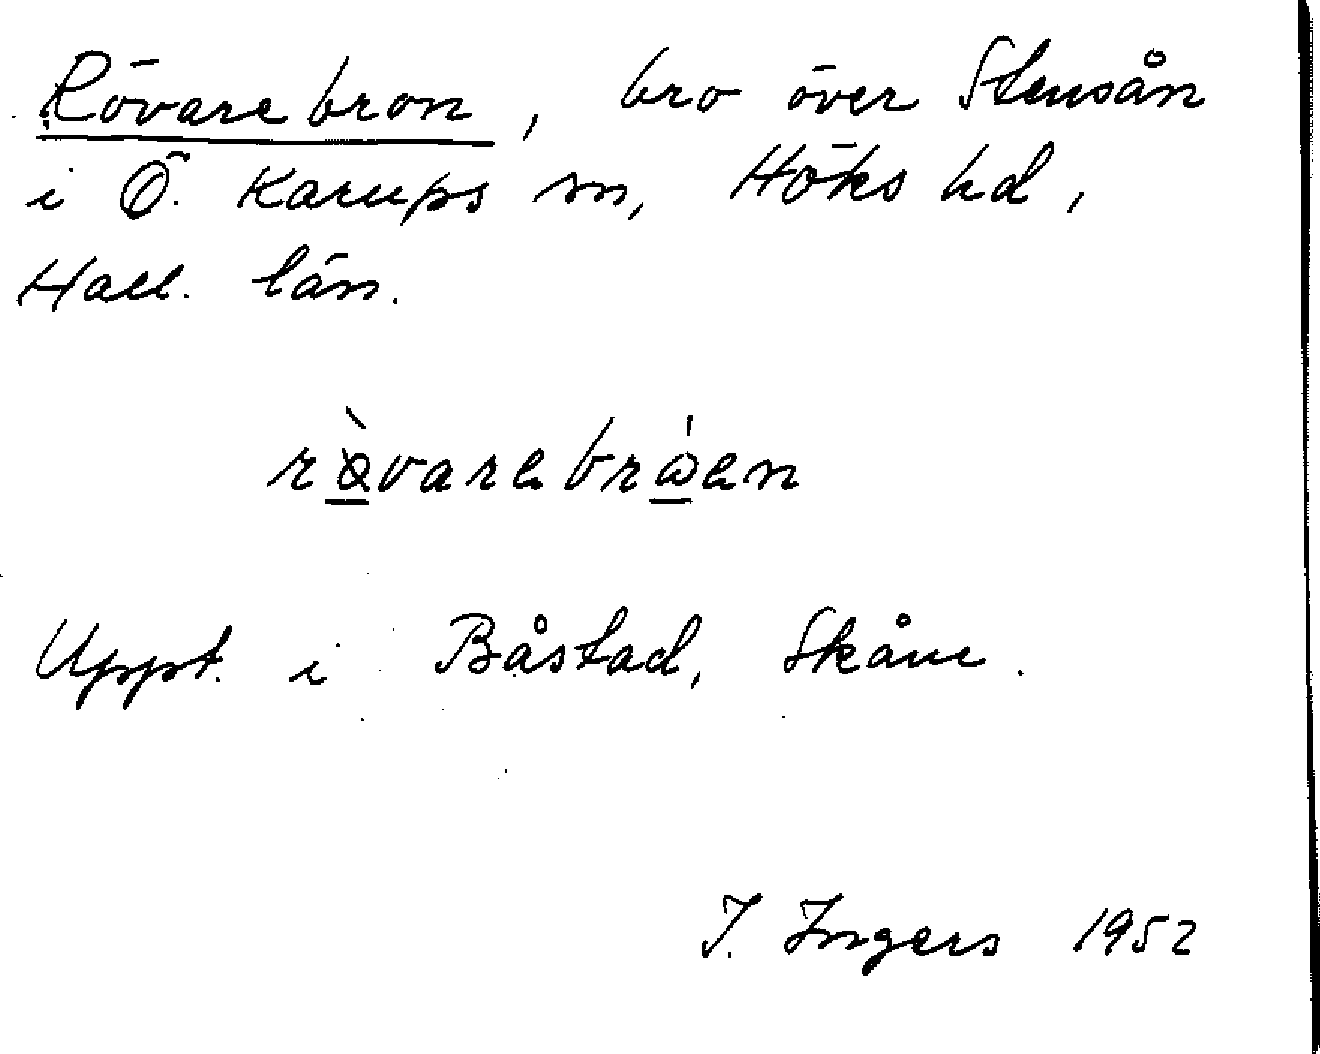 Rövarebron, bro över Stensån
i Ö. Karups sn, Höks hd,
Hall. län.
rö̀varebrωen
Uppt. i Båstad, Skåne.
I. Ingers 1952